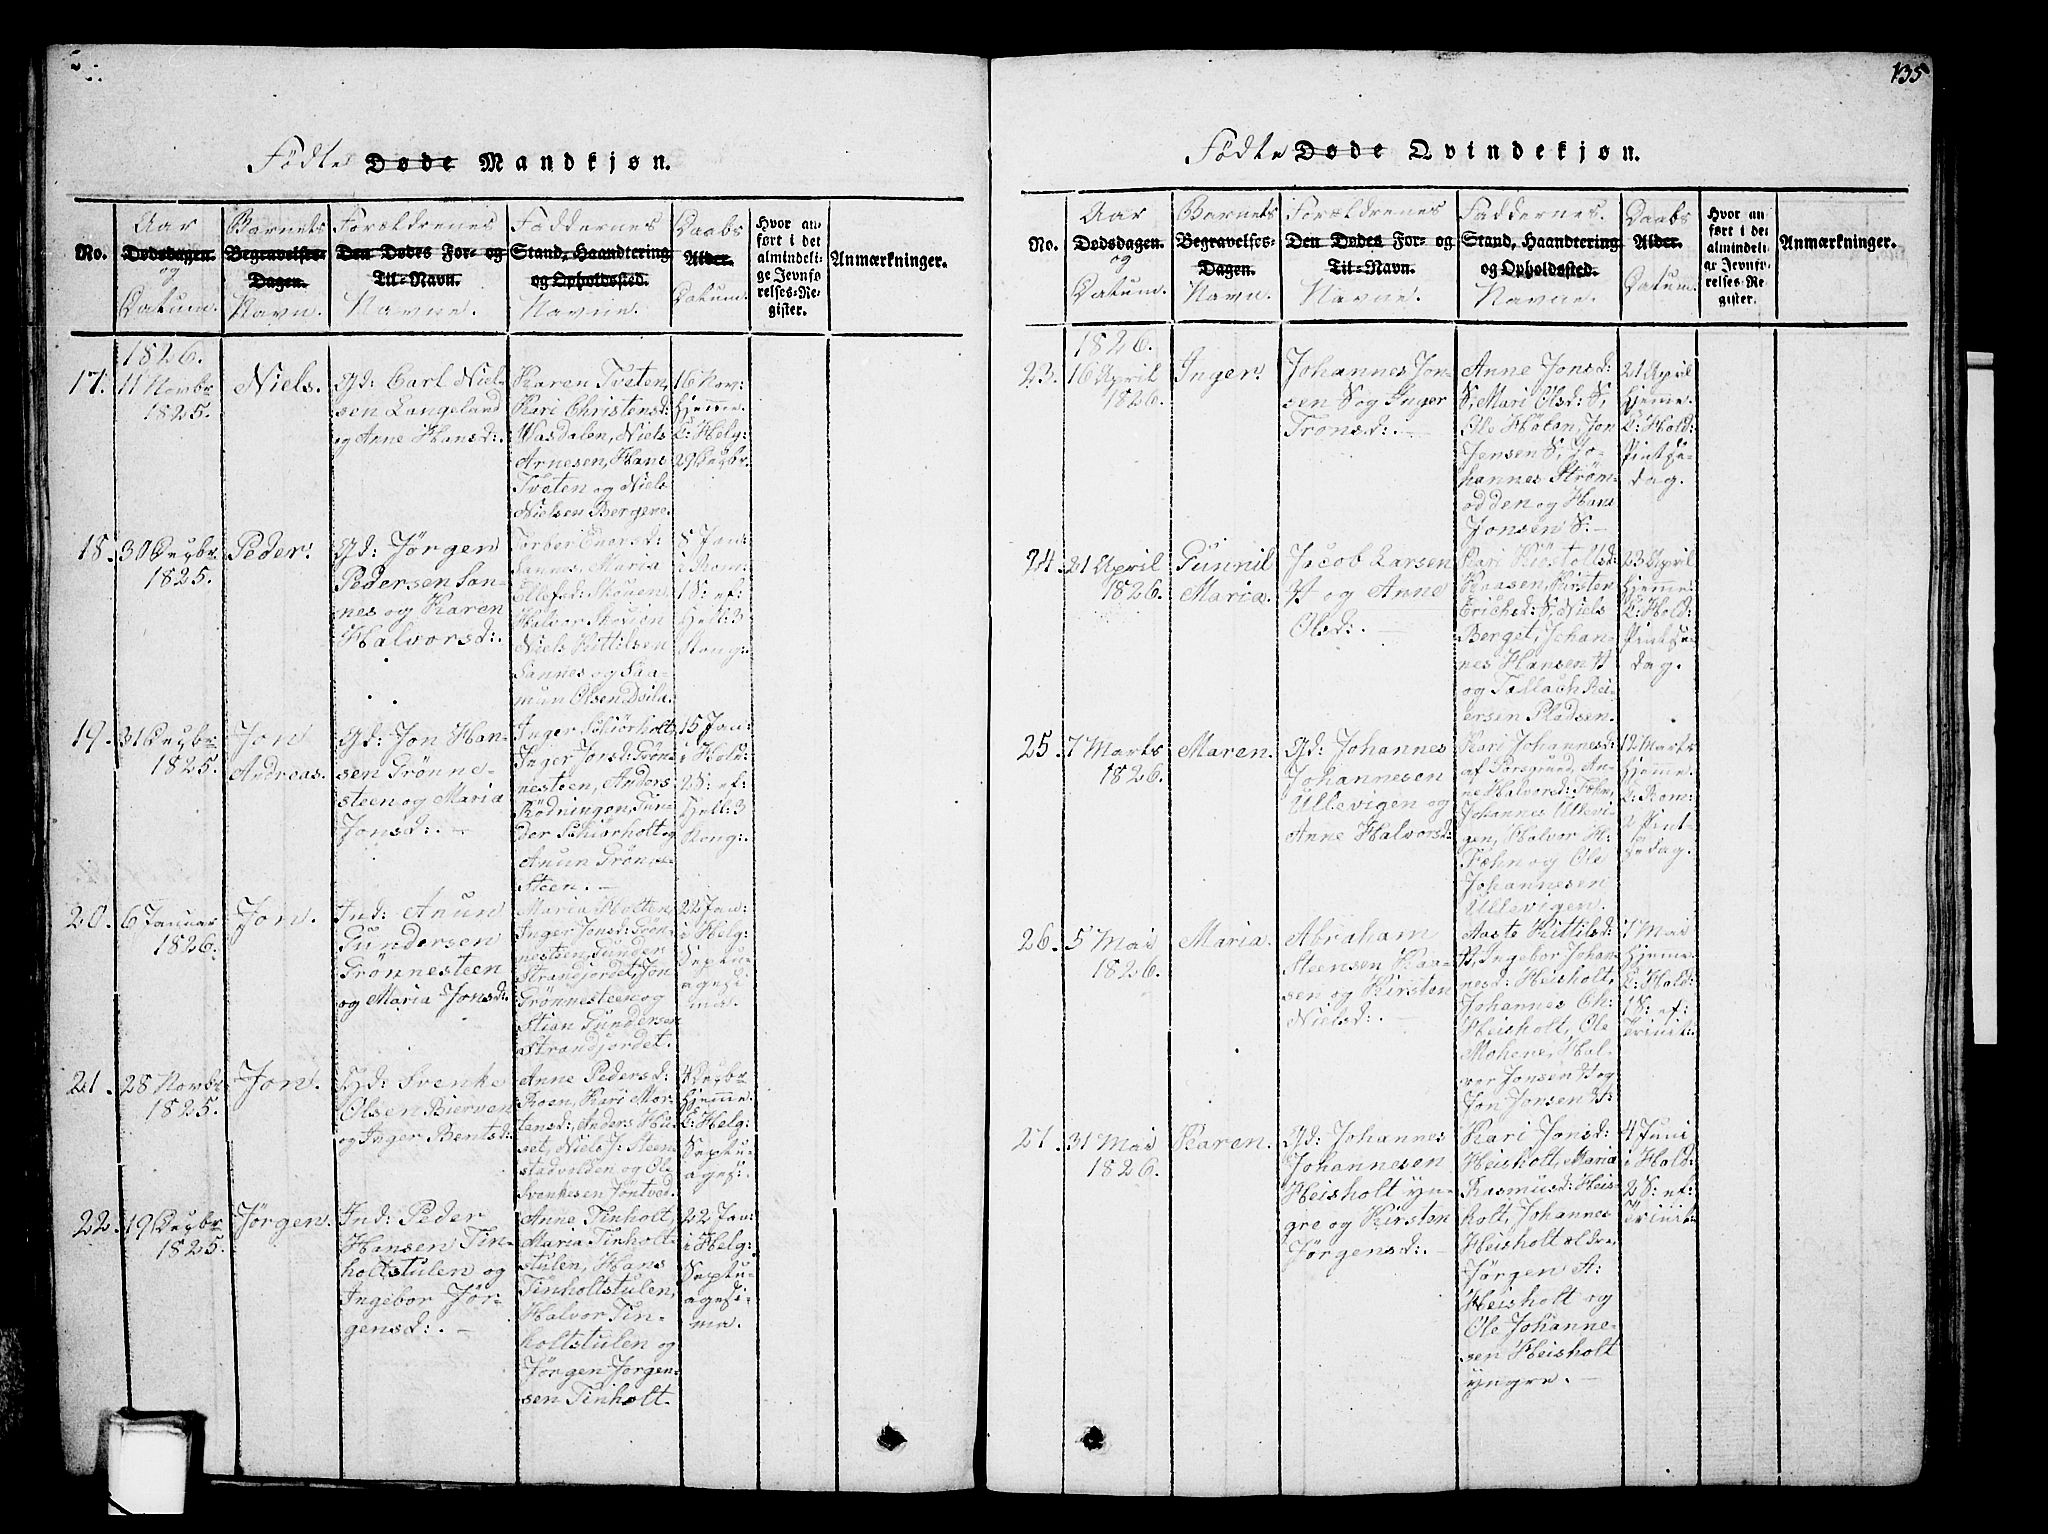 Födte Døde Mandkjøn.
No.
Aar
Dødsdagen.
og
Datum.
Barnets
Begravelses-
Dagen.
Navn.
Forældrenes
Den Dødes For- og
Til-Navn.
Navne.
Faddernes
Stand, Haandtering
og Opholdssted.
Navne.
Daabs
Alder.
Datum.
Hvor an-
ført i det
almindeli-
ge Jevnfø-
relses-Re-
gister.
Anmærkninger.
1826.
17.
11 Novbr
1825.
Niels.
Gd: Carl Niel-
sen Langeland
og Anne Hansd:.
Karen Tveten,
Kari Christensd:
Wasdalen, Niels
Arnesen, Hans
Tveten og Niels
Nielsen Bergene.
16 Nov:
hjemme.
C: Helg:
29 Decbr.
18.
30 Decbr
1825.
Peder.
Gd: Jörgen
Pedersen San-
nes og Karen
Halvorsd:.
Torber Enersd:
Sannes, Maria
Ellefsd: Skouen
Halvor Skouen
Niels Kittilsen
Sannes og Saa-
mun Olsen
8 Jan:
i Rom:
1 S: ef:
Hell: 3
Kong:
19.
31 Decbr
1825.
Jon
Andreas.
Gd: Jon Han-
sen Grönne-
steen og Maria
Jonsd:. —
Inger Schiörholt,
Inger Jonsd: Grön-
nesteen, Anders
Rödningen, Gun-
der Schiörholt og
Anun Grönne-
steen. —
15 Jan:
i Hold:
2 S: ef:
Hell: 3
Kong:
20.
6 Januar
1826.
Jon.
Ind: Anun
Gundersen
Grönnesteen
og Maria Jonsd:.
Maria Holten,
Inger Jonsd: Grön-
nesteen, Gunder
Strandjordet, Jon
Grönnesteen og
Stian Gundersen
Strandjordet.
22 Jan:
i Helg:
Septu-
agesi-
ma.
21.
28 Novbr
1825.
Jon.
Gd: Svenke
Olsen Bierven
og Inger Bentsd:
Anne Pedersd:
Roen, Kari Mor-
tensd:, Anders Hu-
set, Niels J: Steen-
stadvolden og Ole
Svenkesen Töntved.
4 Decbr
hjemme
C: Helg:
Septu-
agesi:
22.
19 Decbr
1825.
Jörgen.
Ind: Peder
Hansen Tin-
holtstulen og
Ingebor Jör-
gensd:. —
Anne Tinholt,
Maria Tinholt-
stulen, Hans
Tinholtstulen,
Halvor Tin-
holtstulen og
Jörgen Jörgen-
sen Tinholt.
22 Jan:
i Helg:
Septu-
agesi-
ma.
135
Födte Døde Qvindekjøn.
No.
Aar
Dødsdagen.
og
Datum.
Barnets
Begravelses-
Dagen.
Navn.
Forældrenes
Den Dødes For- og
Til-Navn.
Navne.
Faddernes.
Stand, Haandtering
og Opholdssted.
Navne.
Daabs
Alder.
Datum.
Hvor an
ført i det
almindeli-
ge Jevnfø-
relses-Re
gister.
Anmærkninger.
1826.
23.
16 April
1826.
Inger.
Johannes Jon-
sen S og Inger
Tronsd:. —
Anne Jonsd:
S, Mari Olsd: S,
Ole Holten, Jon
Jensen S, Jo-
hannes Ström-
odden og Hans
Jonsen S. —
21 April
hjemme.
C: Hold:
Pintse-
dag.
24.
21 April
1826.
Gunnil
Maria.
Jacob Larsen
H og Anne
Olsd:. —
Kari Kiöstolfsd:
Kaasen, Kirsten
Erichsd: S, Niels
Berget, Johan-
nes Hansen H
og Tallach Rei-
ersen Pladsen.
23 April
hjemme.
C: Hold:
Pintse-
dag.
25.
7 Marts
1826.
Maren.
Gd: Johannes
Johannesen
Ullevigen og
Anne Halvorsd:
Kari Johannesd:
af Porsgrund, An-
ne Halvorsd: Fæhn,
Johannes Ullevi-
gen, Halvor H:
Fæhn og Ole
Johannesen
Ullevigen.
12 Marts
hjemme.
C: Rom:
2 Pint-
sedag.
26.
5 Mai
1826.
Maria.
Abraham
Steensen Kaa-
sen og Kirsten
Nielsd:. —
Aaste Kittilsd:
H, Ingebor Johan-
nesd: Heisholt,
Johannes Ch:
Heisholt, Ole
Mohene, Hal-
vor Jonsen H og
Jon Jonsen H.
7 Mai
hjemme.
C: Hold:
1 S: ef:
Trinit:
27.
31 Mai
1826.
Karen.
Gd: Johannes
Johannesen
Heisholt yn-
gre og Kirsten
Jörgensd:. —
Kari Jonsd:
Heisholt, Maria
Rasmusd: Heis-
holt, Johannes
Heisholt ældre,
Jörgen A:
Heisholt og
Ole Johanne-
sen Heisholt
yngre. —
4 Juni
i Hold:
2 S: ef:
Trinit: